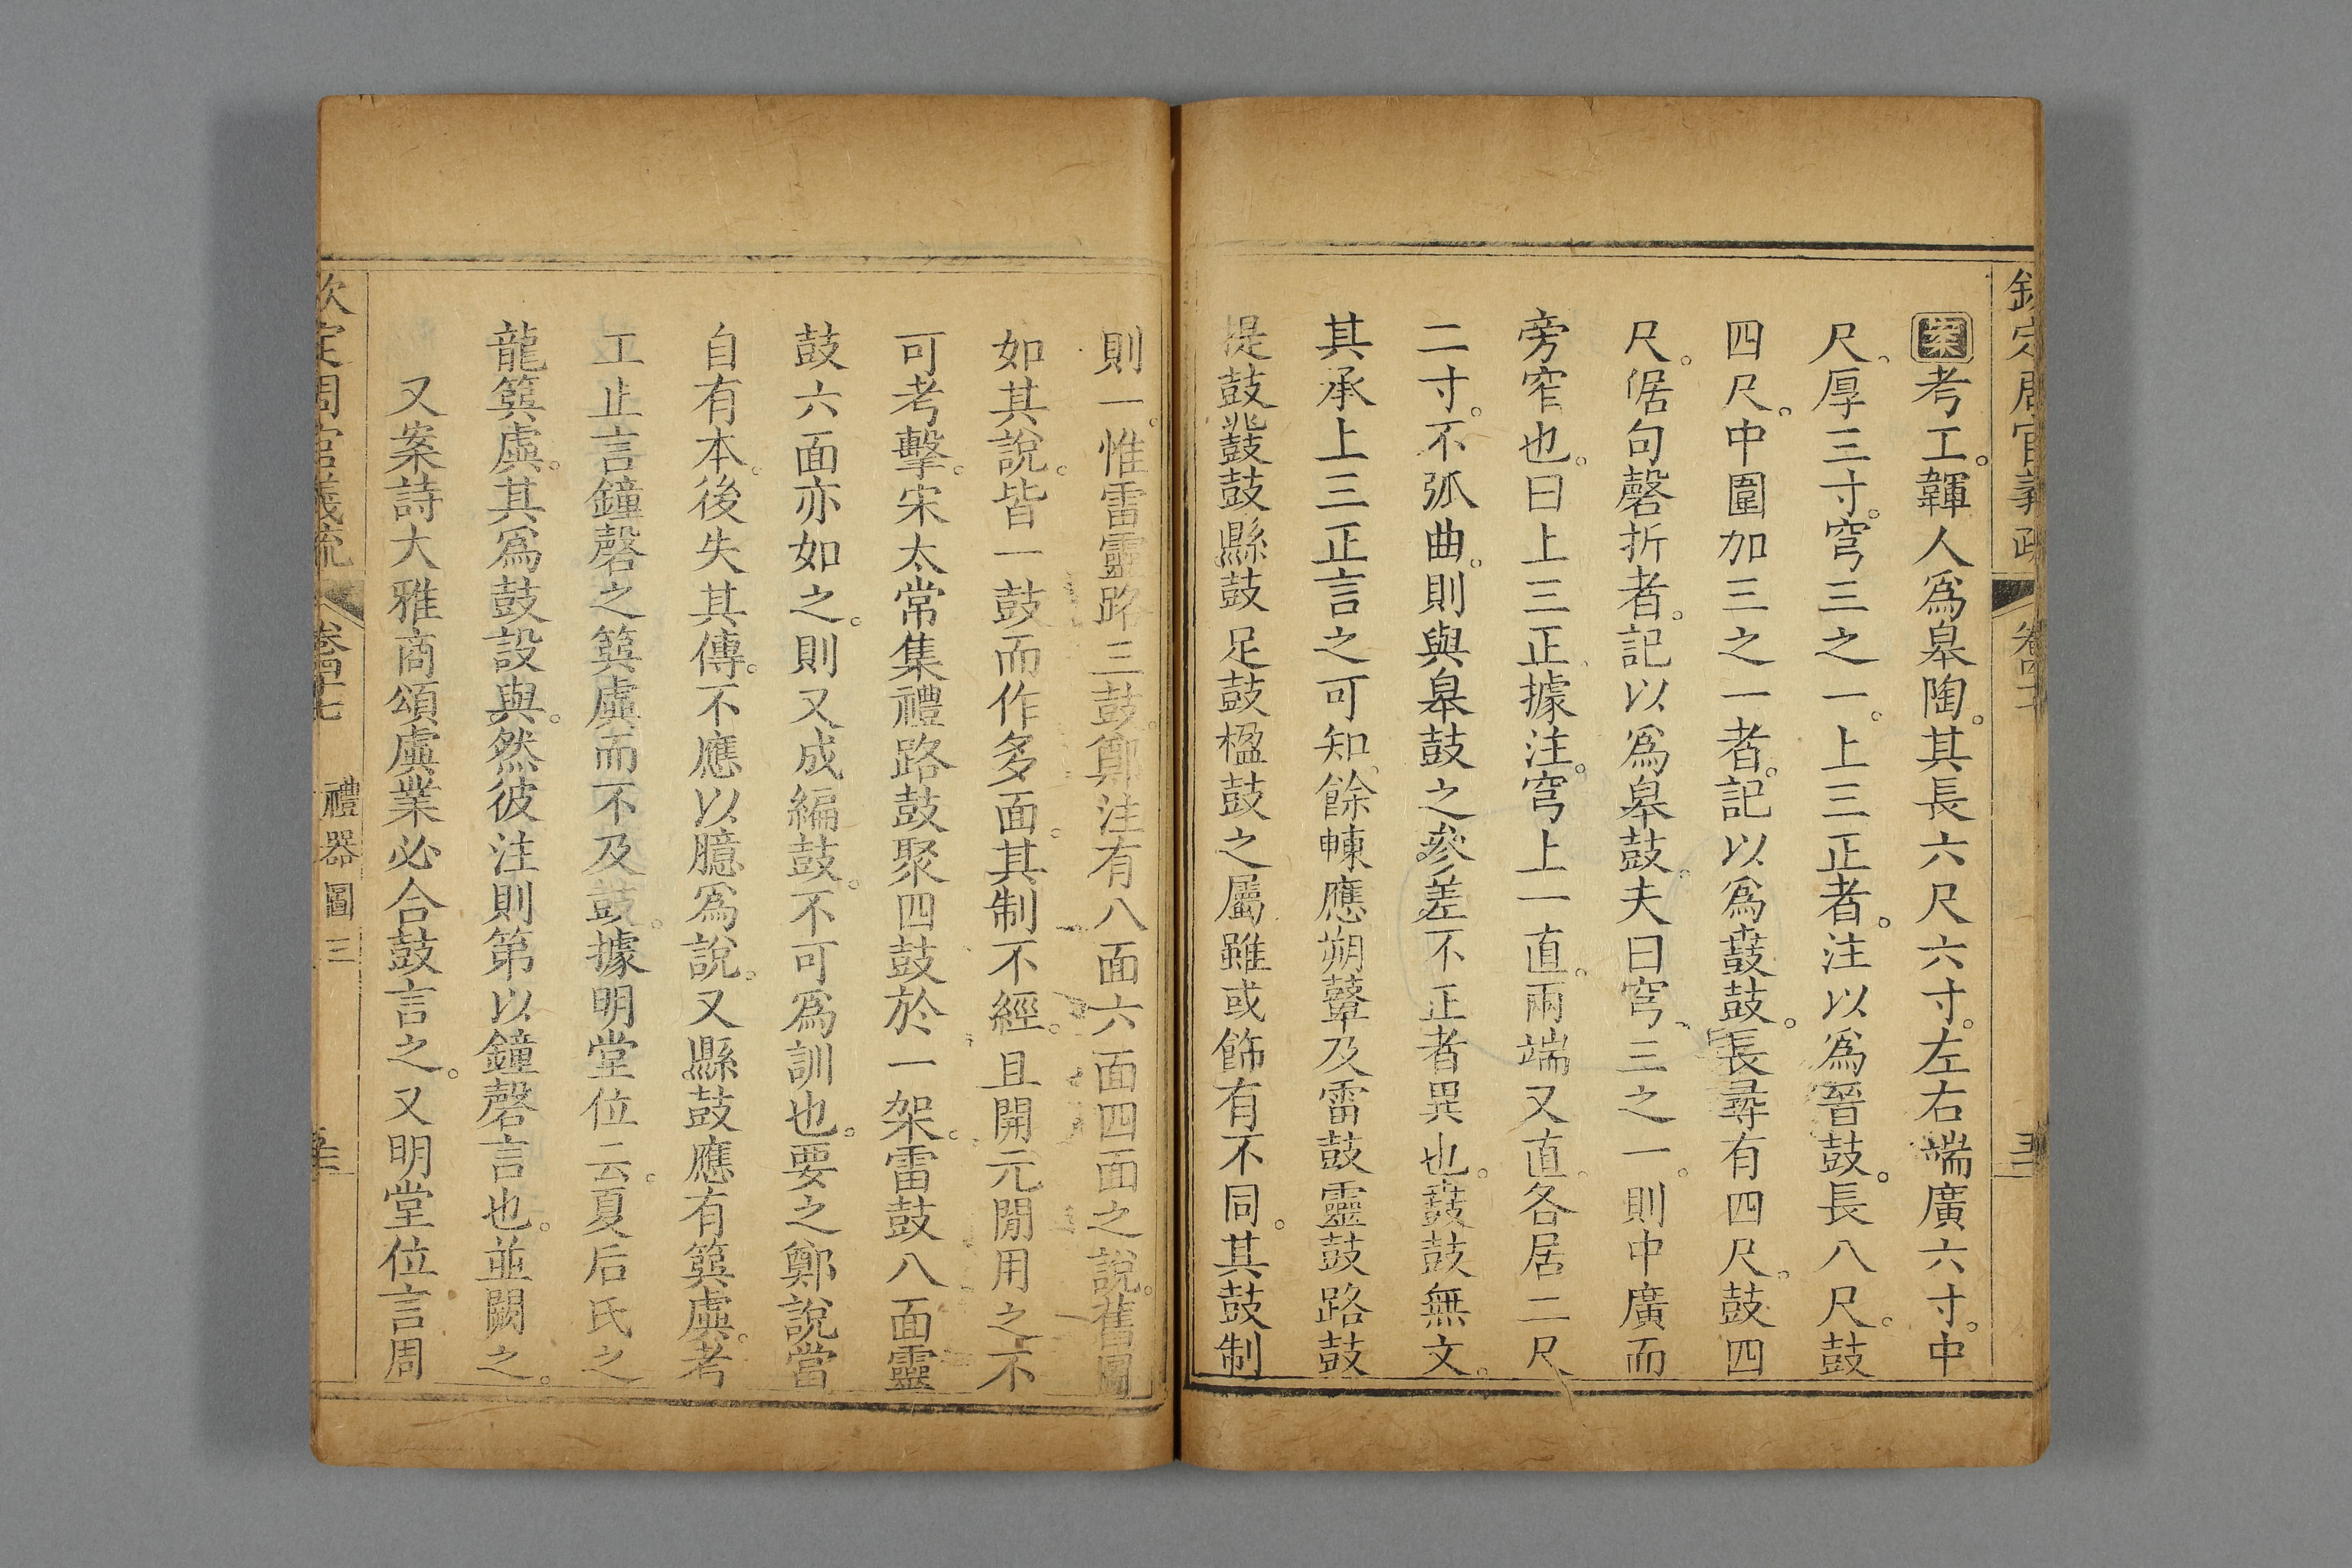 欽定周官義疏 卷四十
案考工。韗人爲皋陶。其長六尺六寸。左右端廣六寸。中
尺。厚三寸。穹三之一。上三正者。注以爲晉鼓。長八尺。鼓
四尺。中圍加三之一者。記以爲鼖鼓。長尋有四尺。鼓四
尺。倨句磬折者。記以爲皋鼓。夫曰穹三之一。則中廣而
旁窄也。曰上三正。據注。穹上一直。兩端又直。各居二尺
二寸。不弧曲。則與皋鼓之參差不正者異也。鼖鼓無文。
其承上三正言之可知。餘朄應朔鼙及雷鼓靈鼓路鼓
提鼓鼗鼓縣鼓足鼓楹鼓之屬雖或飾有不同。其鼓制
則一。惟雷靈路三鼓。鄭注有八面六面四面之說。舊圖
如其說。皆一鼓而作多面。其制不經。且開元閒用之不
可考擊。宋太常集禮路鼓聚四鼓於一架。雷鼓八面靈
鼓六面亦如之。則又成編鼓。不可爲訓也。要之鄭說當
自有本。後失其傳。不應以臆爲說。又縣鼓應有簨虡。考
工止言鐘磬之簨虡而不及鼓。據明堂位云。夏后氏之
龍簨虡。其爲鼓設與。然彼注則第以鐘磬言也。並闕之。
又案詩大雅商頌虡業必合鼓言之。又明堂位言周
欽定周官義疏 卷四十七 禮器圖三